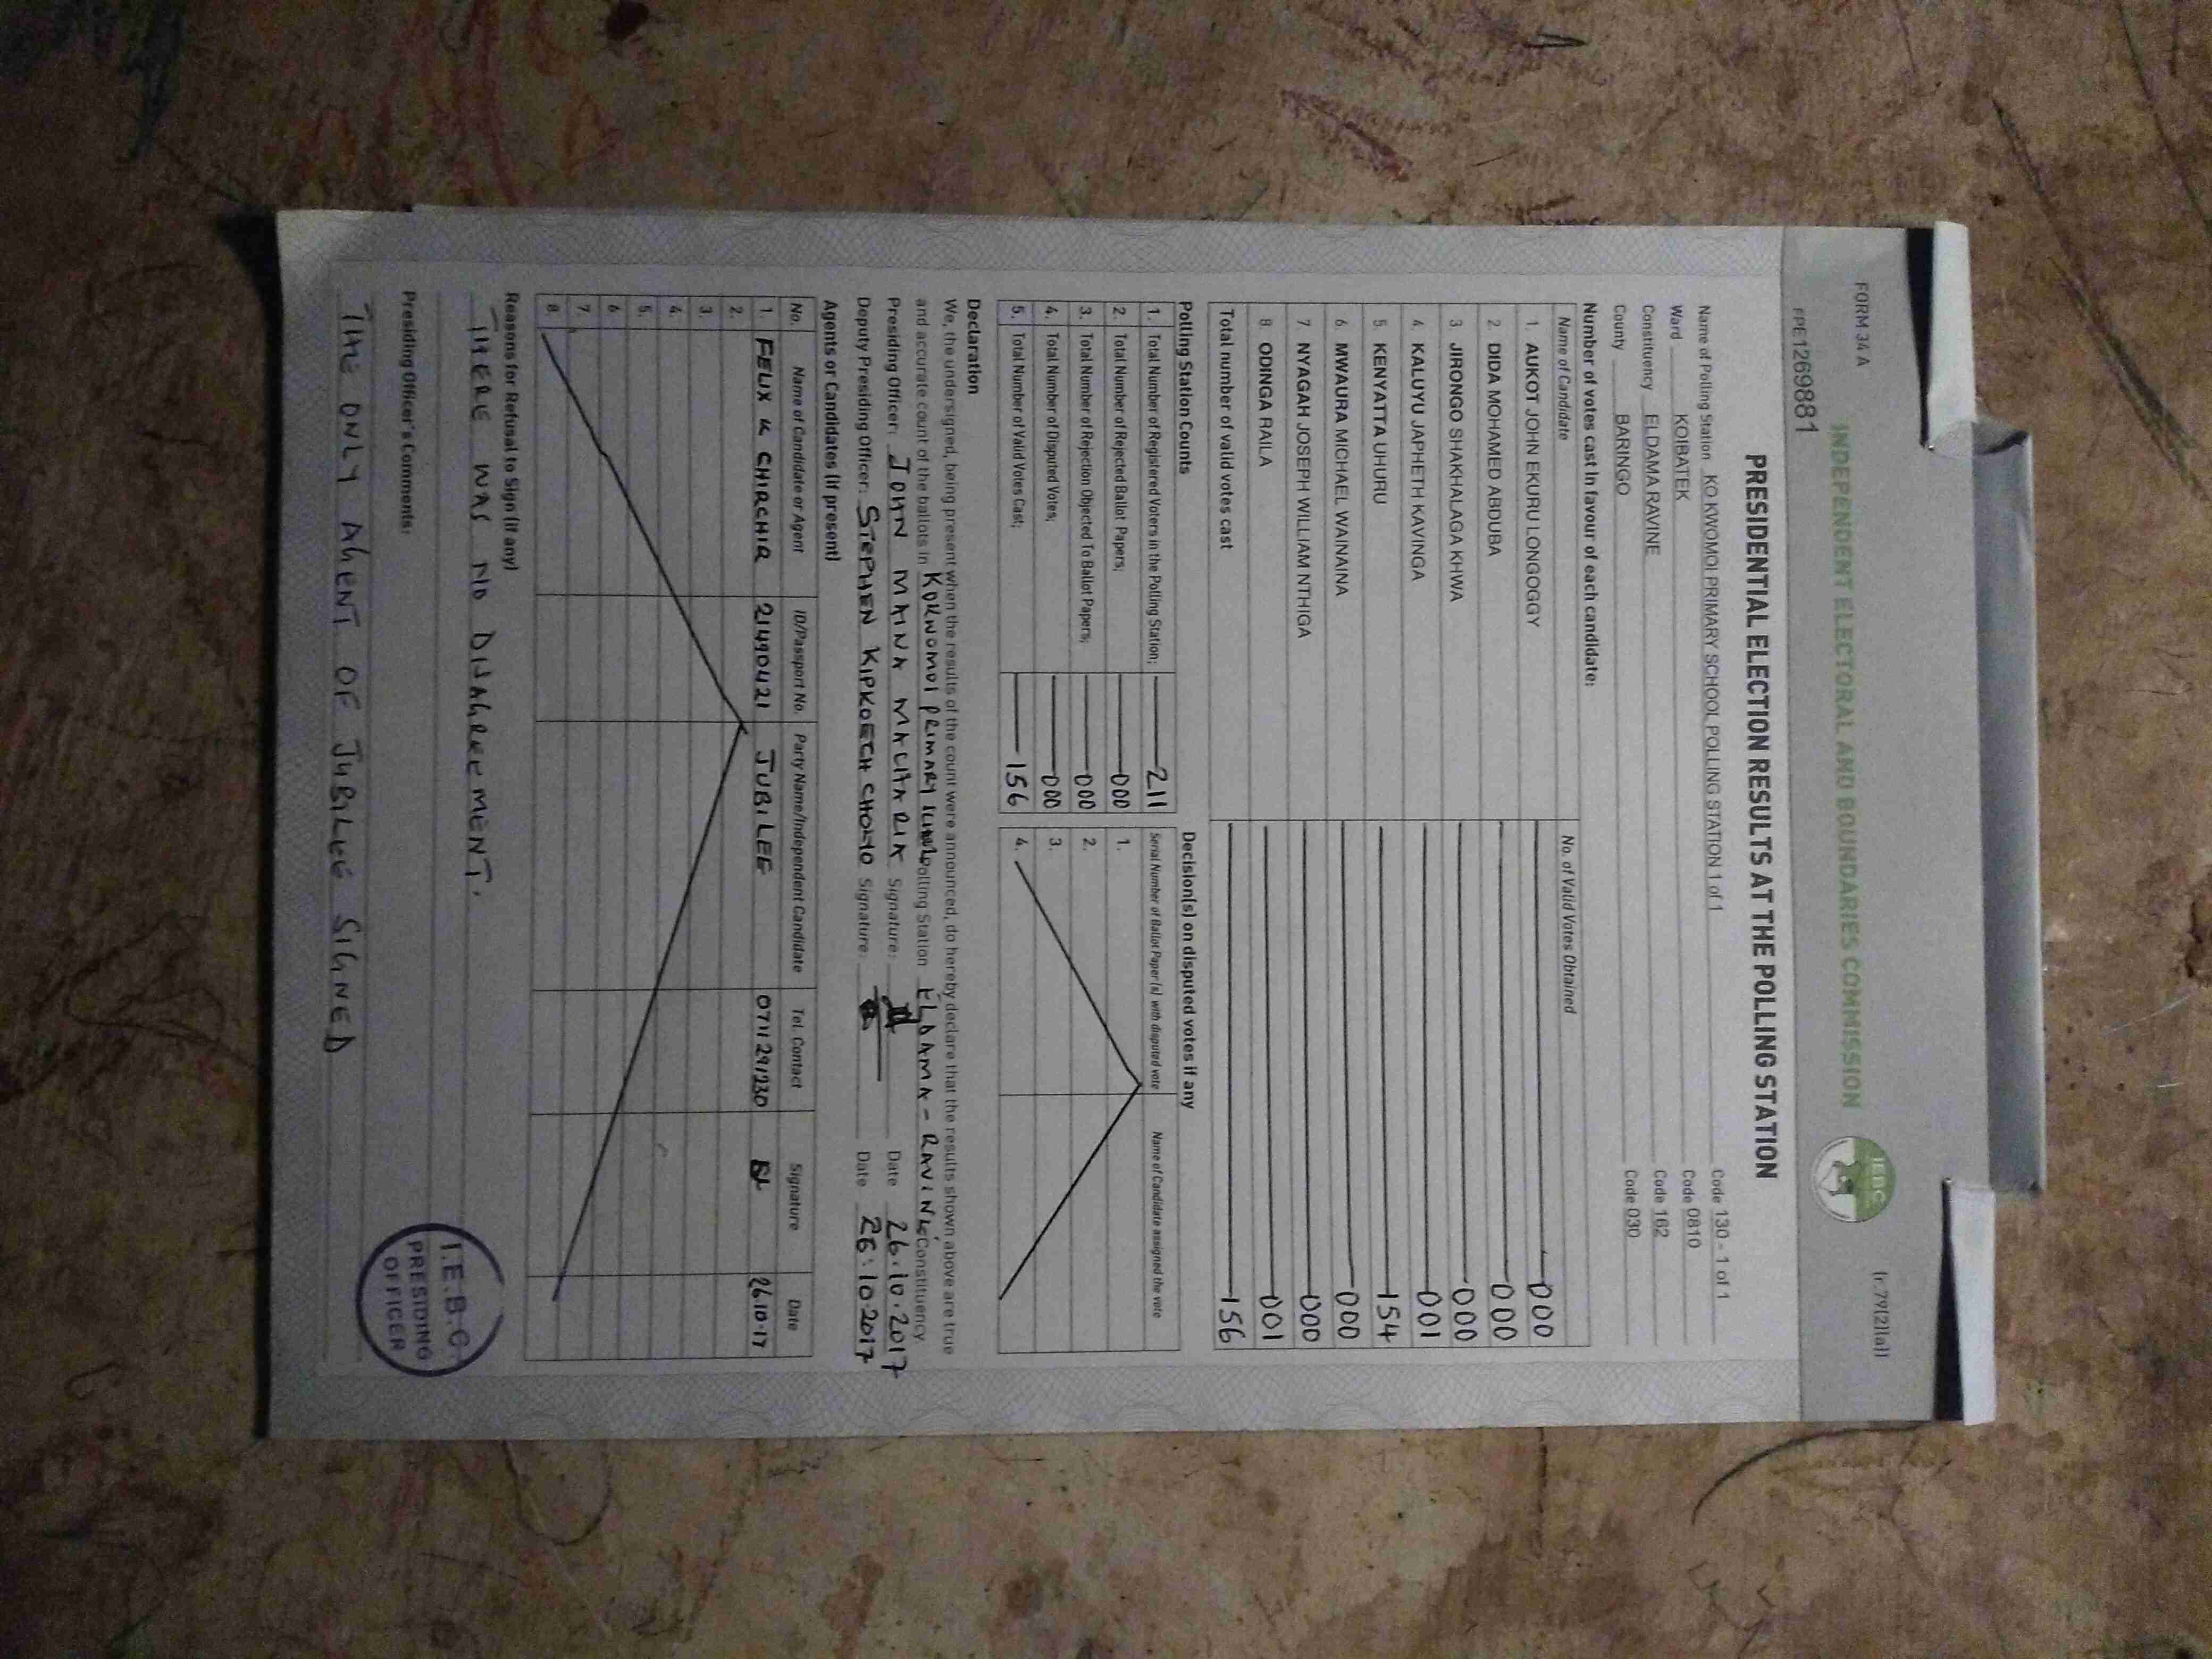 FORM 34 A
(r.79(2)(a))
INDEPENDENT ELECTORAL AND BOUNDARIES COMMISSION
IEBC
FPE1269881
PRESIDENTIAL ELECTION RESULTS AT THE POLLING STATION
Name of Polling Station KO KWOMOI PRIMARY SCHOOL POLLING STATION 1 of 1 Code 130 - 1 of 1
Ward KOIBATEK Code 0810
Constituency ELDAMA RAVINE Code 162
County BARINGO Code 030
Number of votes cast in favour of each candidate:
Name of Candidate No. of Valid Votes Obtained
1. AUKOT JOHN EKURU LONGOGGY 000
2. DIDA MOHAMED ABDUBA 000
3 JIRONGO SHAKHALAGA KHWA 000
4. KALUYU JAPHETH KAVINGA 001
5. KENYATTA UHURU 154
6. MWAURA MICHAEL WAINAINA 000
7 NYAGAH JOSEPH WILLIAM NTHIGA 000
8 ODINGA RAILA 001
Total number of valid votes cast 156
Polling Station Counts
1. Total Number of Registered Voters in the Polling Station; 211
2. Total Number of Rejected Ballot Papers; 000
3. Total Number of Rejection Objected To Ballot Papers; 000
4. Total Number of Disputed Votes; 000
5. Total Number of Valid Votes Cast; 156
Decision(s) on disputed votes if any
Serial Number of Ballot Paper (s) with disputed vote Name of Candidate assigned the vote
1.
2.
3.
4.
Declaration
We, the undersigned, being present when the results of the count were announced, do hereby declare that the results shown above are true
and accurate count of the ballots in KOKWOMOI PRIMARY Polling Station ELDAMA - RAVINE Constituency.
Presiding Officer: JOHN MAINA Signature: Date 26.10.2017
Deputy Presiding Officer: STEPHEN KIPKOECH Signature: Date 26.10.2017
Agents or Candidates (if present)
No. Name of Candidate or Agent ID/Passport No. Party Name/Independent Candidate Tel. Contact Signature Date
1. FELIX K CHIRCHIR 21490421 JUBILEE 0711291230 26.10.17
2.
3.
4.
5.
6
7.
8.
Reasons for Refusal to Sign (if any)
THERE WAS NO DISAGREEMENT.
Presiding Officer's Comments:
THE ONLY AGENT OF JUBILEE SIGNED
I.E.B.C.
PRESIDING
OFFICER